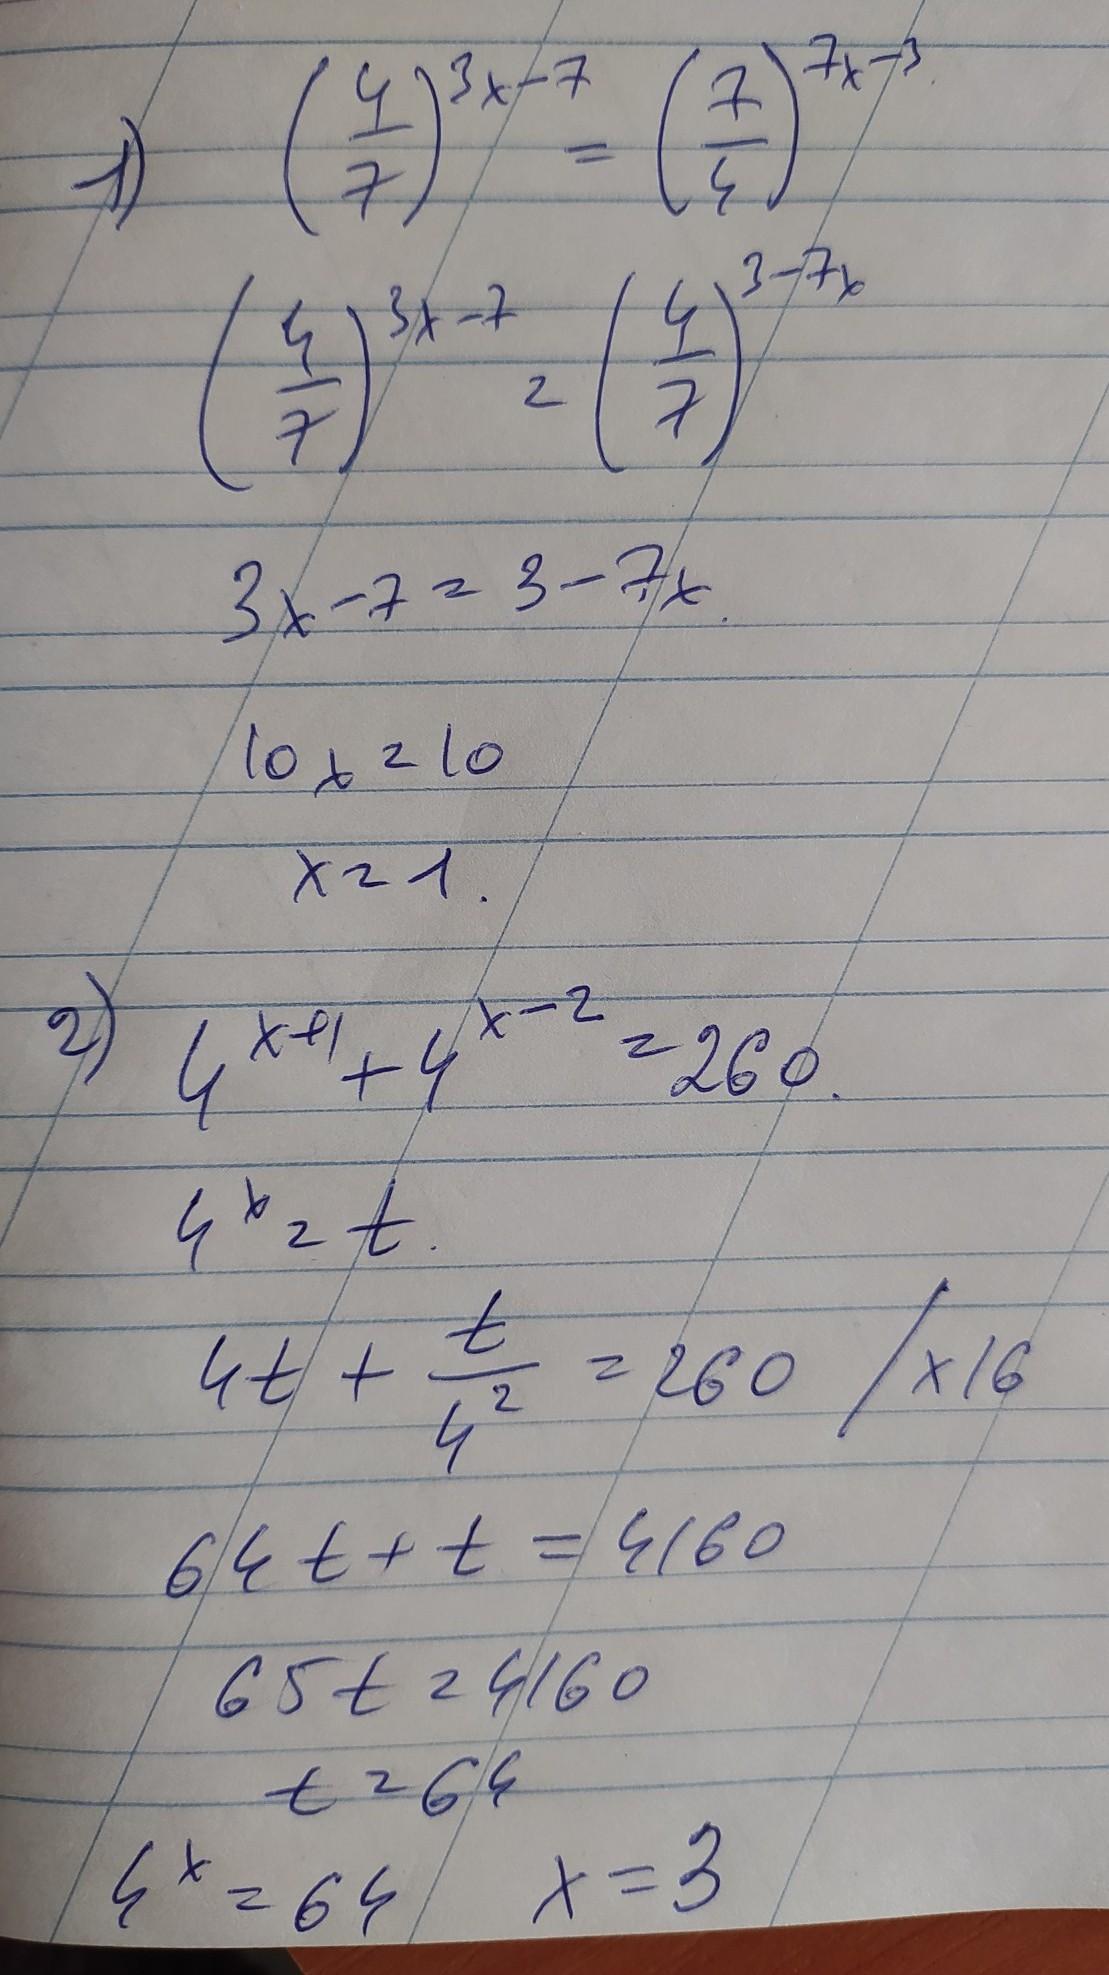 1) (4/7)^(3x-7) = (7/4)^(7x-3)
(4/7)^(3x-7) = (4/7)^(3-7x)
3x-7 = 3-7x.
10x = 10
x = 1.
2) 4^(x+1) + 4^(x-2) = 260.
4^x = t.
4t + t/4^2 = 260 /x16
64t + t = 4160
65t = 4160
t = 64
4^x = 64 x = 3